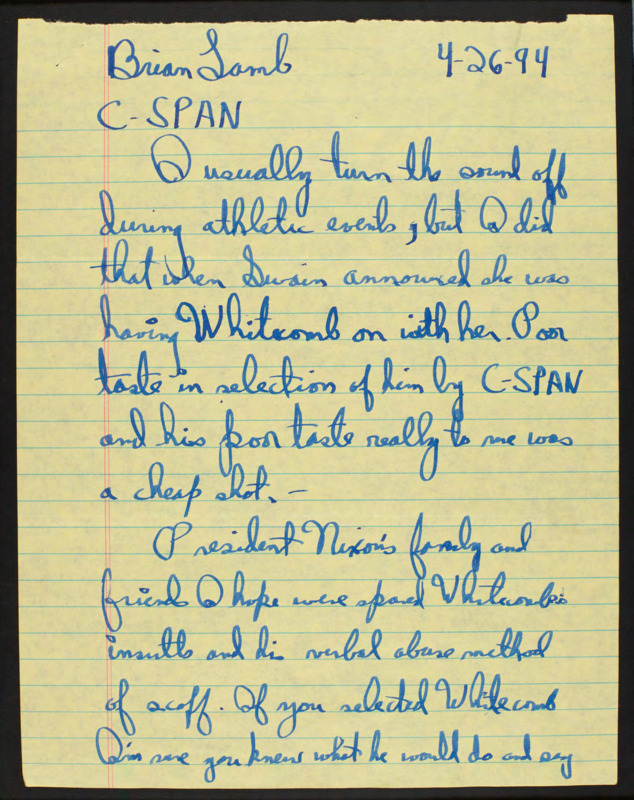 Brian Lamb 4-26-94
C-SPAN
I usually turn the sound off
during athletic events, but I did
that when Swain announced she was
having Whitcomb on with her. Poor
taste in selection of him by C-SPAN
and his poor taste really to me was
a cheap shot. —
President Nixon's family and
friends I hope were spared Whitcomb's
insults and his verbal abuse method
of scoff. If you selected Whitcomb
I'm sure you knew what he would do and say